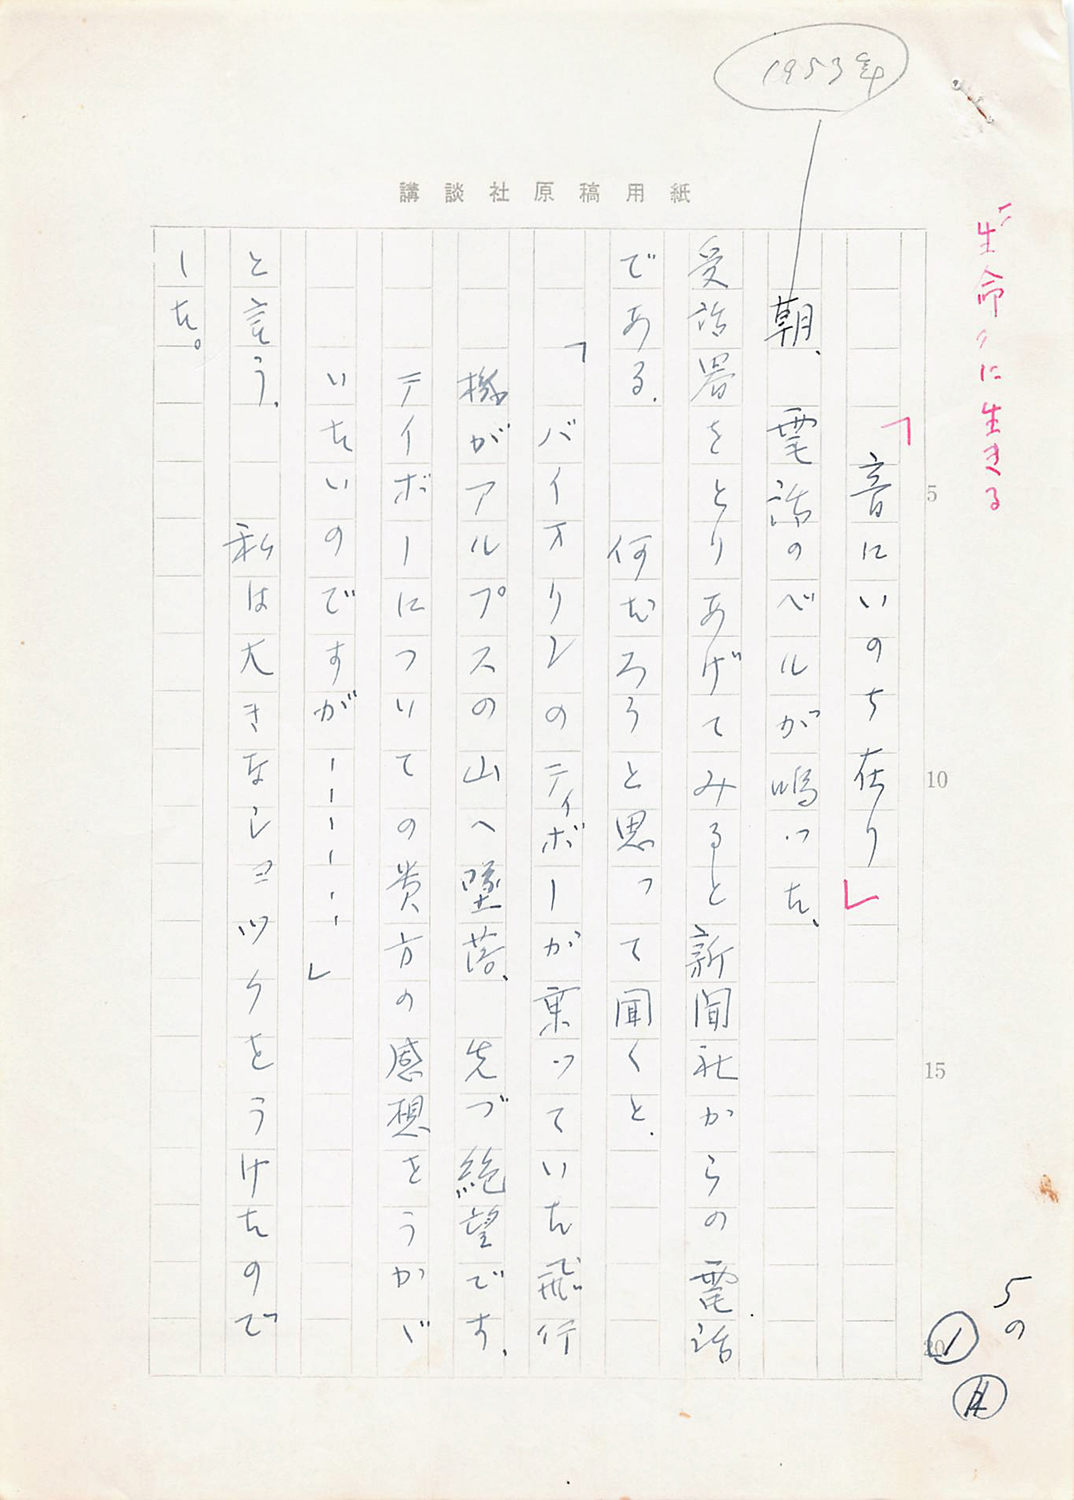 1953年
講談社原稿用紙
〃生命〃に生きる
「音にいのち在り」
朝、電話のベルが鳴った、
受話器をとりあげてみると新聞社からの電話
である、何だろうと思って聞くと、
「バイオリンのティボーが乗っていた飛行
機がアルプスの山へ墜落、先づ絶望です、
ティボーについての貴方の感想をうかゞ
いたいのですが------」
と言う、私は大きなショックをうけたので
した。
5
10
15
20
5の
1